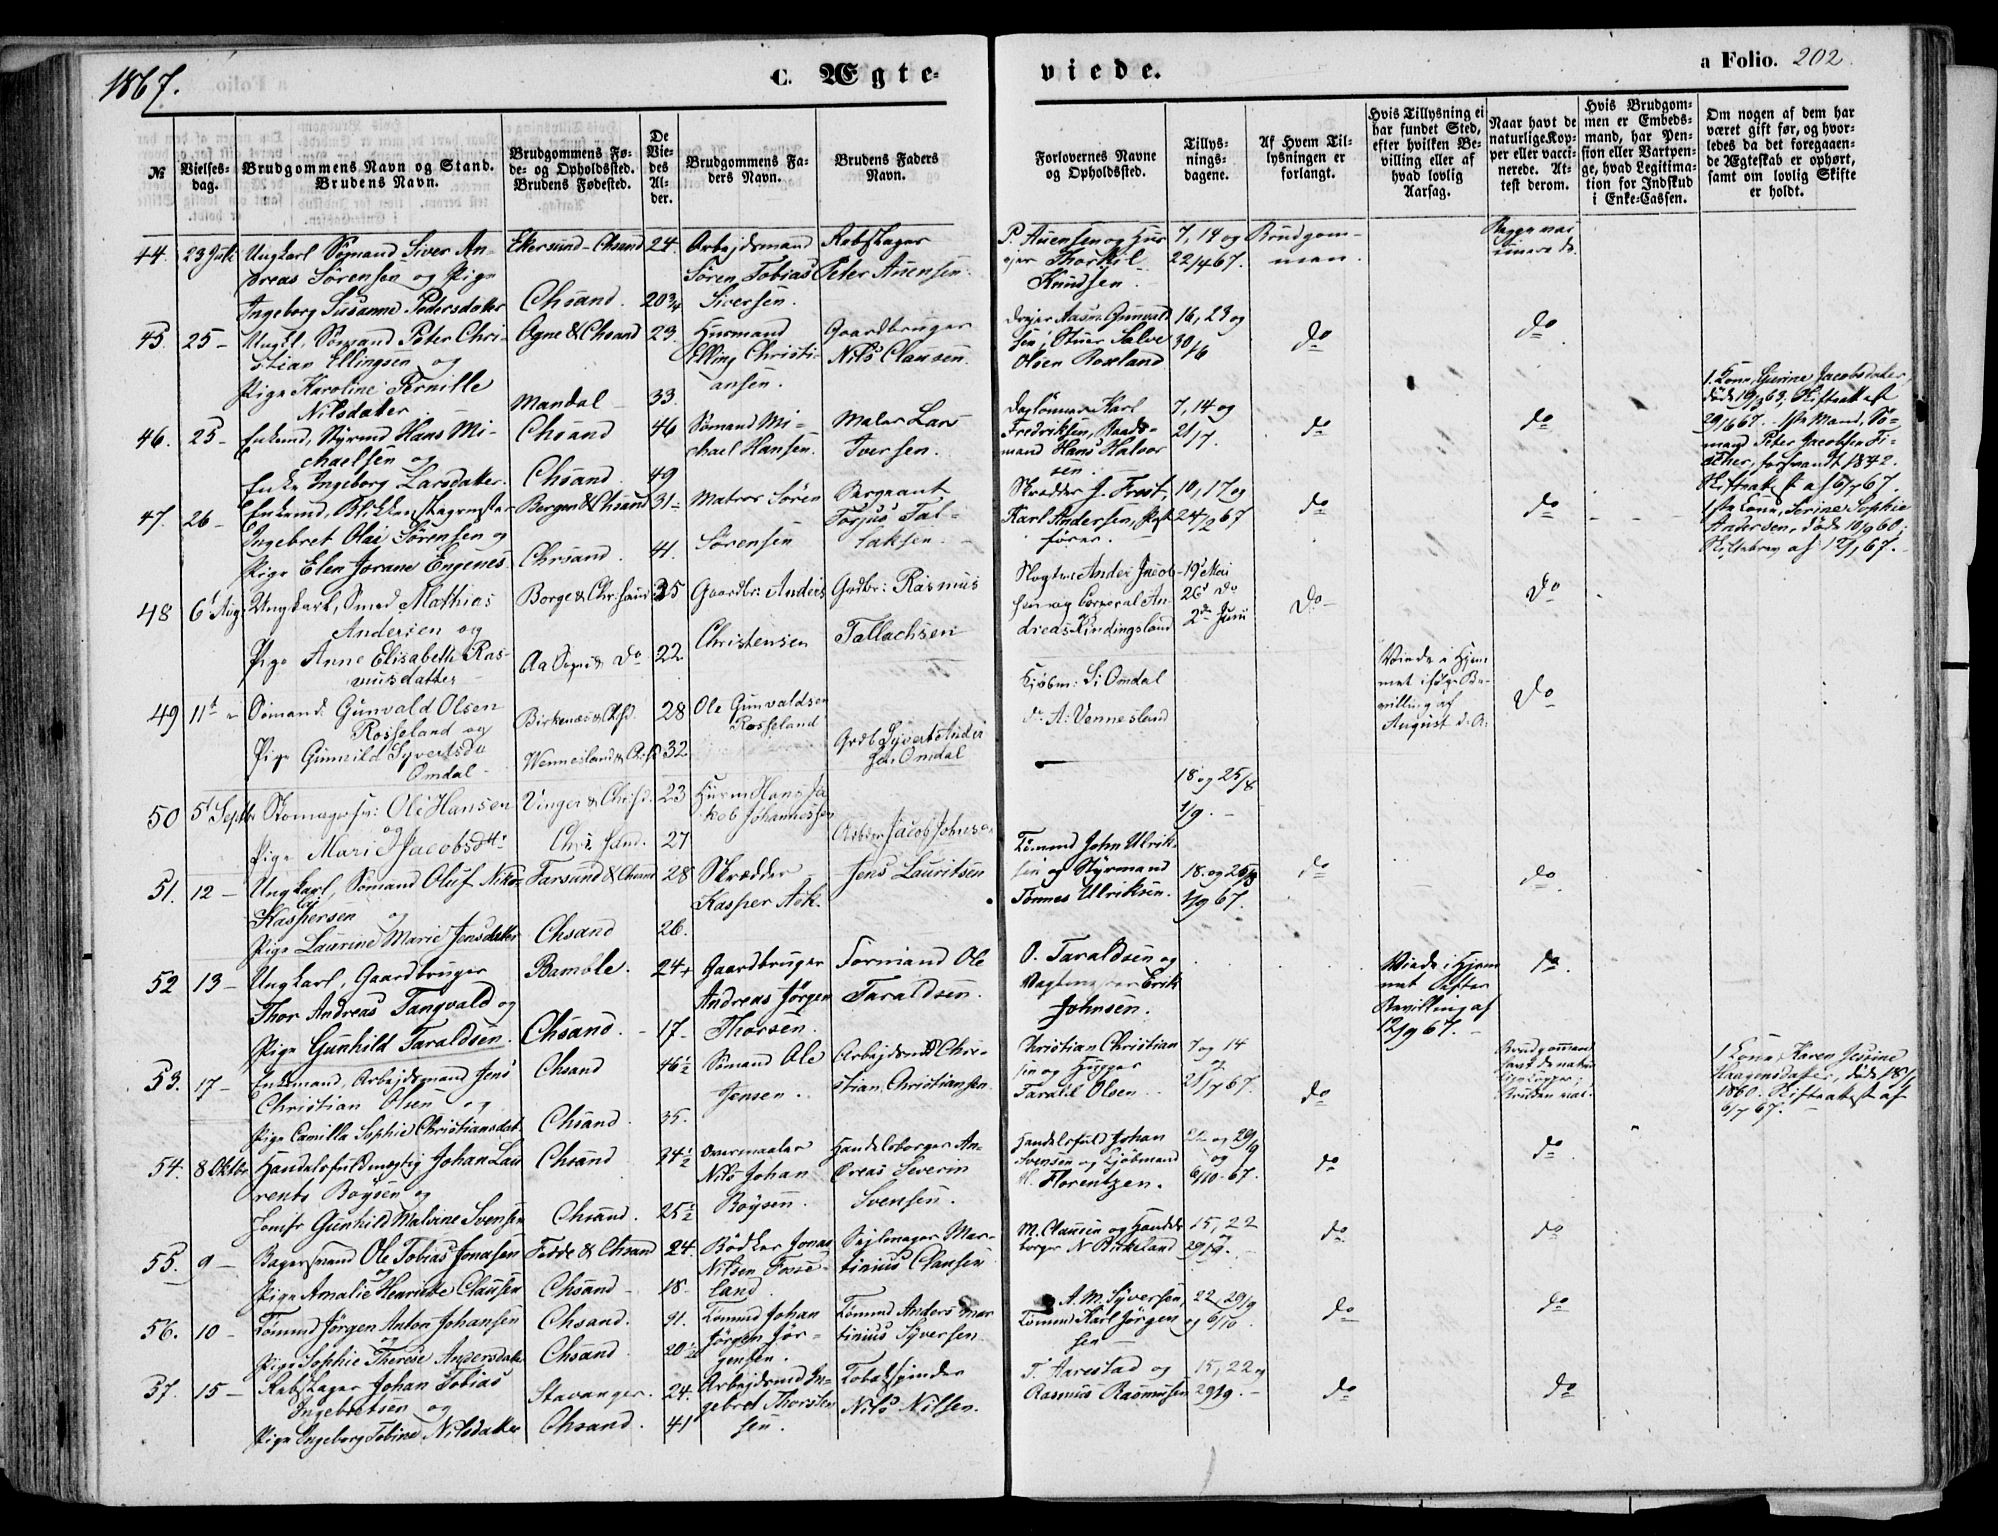 1867.
C. Ægte-
viede.
a Folio. 202.
№
Vielses-
dag.
Brudgommens Navn og Stand.
Brudens Navn.
Brudgommens Fø-
de- og Opholdssted.
Brudens Fødested.
De
Vie-
des
Al-
der.
Brudgommens Fa-
ders Navn.
Brudens Faders
Navn.
Forlovernes Navne
og Opholdssted.
Tillys-
nings-
dagene.
Af Hvem Til-
lysningen er
forlangt.
Hvis Tillysning ei
har fundet Sted,
efter hvilken Be-
villing eller af
hvad lovlig
Aarsag.
Naar havt de
naturlige Kop-
per eller vacci-
nerede. At-
test derom.
Hvis Brudgom-
men er Embeds-
mand, har Pen-
sion eller Vartpen-
ge, hvad Legitima-
tion for Indskud
i Enke-Cassen.
Om nogen af dem har
været gift før, og hvor-
ledes da det foregaaen-
de Ægteskab er ophørt,
samt om lovlig Skifte
er holdt.
44. 23 Juli Ungkarl Sømand Siver An-
dreas Sørensen og Pige
Ingeborg Susanne Pedersdatter
Ekersund - Chsand 24.
Chsand. 20 3/4
Arbejdsmand
Søren Tobias
Siversen.
Rebslager
Peter Auensen.
P. Auensen og
Thorkil
Knudsen
7, 14 og
22/4 67.
Brudgom-
men.
45. 25 - Ungk. Sømand Peter Chri-
stian Ellingsen og
Pige Karoline Pernille
Nilsdatter
Ogne & Chsand 23.
Mandal 33.
Husmand
Elling Christi-
ansen.
Gaardbruger
Nils Clausen.
Olsen Roxland
16, 23 og
30/6
do
do
46. 25 - Enkemd, Styrmd Hans Mi-
chaelsen og
Enke Ingeborg Larsdatter.
Chsand 46
Chsand. 49
Sømand Mi-
chael Hansen.
Maler Lars
Iversen.
Daglønner Karl
Fredriksen, Baads-
mand Hans Halvor
sen.
7, 14 og
21/7.
do
do
1. Kone, Gurine Jacobsdatter,
død 19/3 63. Skifteatt. af
29/6 67. 1ste Mand, Sø-
mand Peter Jacobsen Fi-
scher, forsvandt 1842.
Skifteattest af 6/7 67.
47. 26 - Enkemd, Blikkenslagermster
Ingebret Olai Sørensen og
Pige Elen Jorane Engenes
Bergen & Chsand 31
Chrsand. 41.
Matros Søren
Sørensen
Sergeant
Torjus Tal-
laksen.
Skrædder J. Frost,
Karl Andersen, Post
fører.
10, 17 og
24/2 67
do
do
1ste Kone, Serine Sophie
Andersen, død 10/9 60;
Skiftebrev af 17/1 67.
48 6t Aug. Ungkarl, Smed Mathias
Andersen og
Pige Anne Elisabeth Ras-
musdatter
Borge & Chr.sand 35
Aa Sogn & do 22
Gaardbr: Anders
Christensen
Grdbr: Rasmus
Tallachsen
Anders Jacob-
sen og Corporal An-
dreas Kindingsland
19 Mai
26 do
2de Juni
Do
do
49 11t " Sømand. Gunvald Olsen
Rosseland og
Pige Gunvild Syvertsdtr
Omdal
Birkenæs & Chsd. 28
Wennesland & Chsd 32
Ole Gunvaldsen
Rosseland
Grdb Syvert Ander
sen Omdal
Kjøbm: S: Omdal
do A: Vennesland
Viede i Hjem
met ifølge Be-
villing af
August d. A.
do
50 5t Septbr Skomagersv: Ole Hansen
og
Pige Marie Jacobsdtr
Vinger & Chrsd. 23
Chr.sand. 27
Husm Hans Ja
kob Johannessen
Arbm Jacob Johnsen
18 og 25/8
1/9. -
51. 12 - Ungkarl, Sømand Oluf Niko-
lai
Kaspersen og
Pige Laurine Marie Jensdatter
Farsund & Chsand 28
Chsand 26.
Skrædder
Kasper Ask.
Jens Lauritsen
Tømmd John Ulrik
sen og Styrmand
Tønnes Ulriksen.
18. og 25/8
1/9 67.
do
do
52 13 - Ungkarl, Gaardbruger
Thor Andreas Tangvald og
Pige Gunhild Taraldsen.
Bamble. 24
Chsand. 17
Gaardbruger
Andreas Jørgen
Thorsen.
Formand Ole
Taraldsen.
O. Taraldsen og
Erik
Johnsen.
Viede i Hjem
met efter
Bevilling af
12/9 67.
do.
53. 17 - Enkemand, Arbejdsmand Jens
Christian Olsen og
Pige Camilla Sophie Christiansdat.
Chsand 46 1/2
Chsand. 35.
Sømand Ole
Jensen.
Arbejdsmd Chri-
stian Christiansen
Christian Christian
sen og
Tarald Olsen
7 og 14
og
21/7 67.
do
Brudgommen
havt de natur
lige Kopper;
Bruden vac.
1 Kone, Karen Jesine
Haagensdatter, død 18/4
1860. Skifteattest af
6/7 67.
54. 8 Oktbr Handelsfuldmægtig Johan Lau
rents Boysen og
Jomfr Gunhild Malvine Svensen
Chsand 24 1/2
Chsand. 25 1/2
Overmaaler
Nils Johan
Boysen.
Handelsborger An-
dreas Severin
Svensen.
Handelsfuld Johan
Svensen og Kjøbmand
H. Florentzen.
22 og 29/9
og
6/10 67.
do
do
55. 9 - Bagersvend Ole Tobias Jonasen
og
Pige Amalie Henriette Clausen
Fedde & Chsand 24.
Chsand 18.
Bødker Jonas
Nilsen Fosse-
land.
Sejlmager Mar-
tinius Clausen
M. Clausen og Handels
borger N Birkeland
15, 22
og
29/9.
do
do
56. 10 - Tømmd Jørgen Anton Johansen
og
Pige Sophie Therese Andersdatter
Chsand. 21.
Chsand. 20 1/2
Tømmd Johan
Jørgen Jør-
gensen.
Tømmd Anders Mar
tinius Syversen.
A. M. Syversen,
Tømmd Karl Jørgen
sen
22, 29/9
og 6/10
do
do
57. 15 - Rebslager Johan Tobias
Ingebretsen og
Pige Ingeborg Tobine Nilsdatter
Stavanger. 24.
Chsand. 41
Arbejdsmd In-
gebret Thorsten
sen.
Tobakspinder
Nils Nilsen.
T. Aarestad og
Rasmus Rasmussen
15, 22 og
29/9. -
do
do